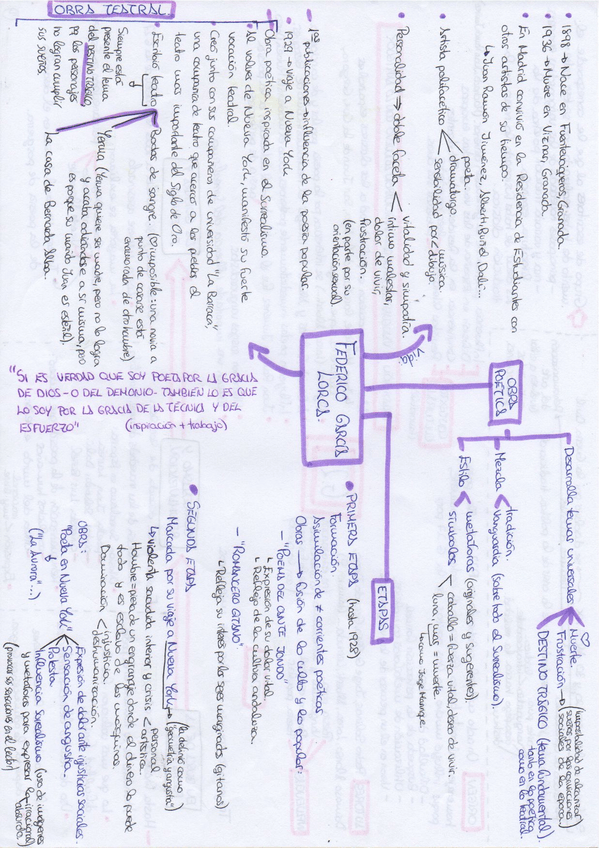 FEDERICO GARCÍA
LORCA:
Vida:
• 1898 → Nace en Fuentevaqueros, Granada.
• 1936 → Muere en Viznar, Granada.
• En Madrid convivió en la Residencia de Estudiantes con
otros artistas de su tiempo.
↳ Juan Ramón Jimenez, Alberti, Buñel, Dalí...
• Artista polifacético
poeta
dramaturgo
sensibilidad por
música
dibujo.
• Personalidad → doble faceta
vitalidad y simpatía.
íntimo malestar,
dolor de vivir,
frustración.
(en parte por su
orientación sexual)
• 1as publicaciones → influencia de la poesía popular.
• 1929 → viaje a Nueva York
Obra poética inspirada en el Surrealismo
• Al volver de Nueva York, manifestó su fuerte
vocación teatral
• Creó junto con sus compañeros de universidad "La Barraca",
una compañía de teatro que acercó a los pueblos el
teatro más importante del Siglo de Oro.
• Escribió teatro
OBRA TEATRAL
Siempre está
presente el tema
del DESTINO TRÁGICO
pq los personajes
no logran cumplir
sus sueños.
Bodas de sangre (amor imposible: una novia a
punto de casarse está
enamorada de otro hombre)
Yerma (Yerma quiere ser madre, pero no lo logra
y acaba odiándose a sí misma, pero
es porque su marido Juan es estéril).
La casa de Bernarda Alba.
"SI ES VERDAD QUE SOY POETA POR LA GRACIA
DE DIOS - O DEL DEMONIO - TAMBIÉN LO ES QUE
LO SOY POR LA GRACIA DE LA TÉCNICA Y DEL
ESFUERZO" (inspiración + trabajo)
OBRA
POÉTICA
• Desarrolla temas universales
Muerte.
Frustración →
(imposibilidad de alcanzar
sueños por las convenciones
sociales de la época)
DESTINO TRÁGICO (tema fundamental).
tanto en la poética
como en la teatral.
• Mezcla
tradición.
vanguardia (sobre todo el Surrealismo).
• Estilo
metáforas (originales y sugerentes).
símbolos
caballo = fuerza vital, deseo de vivir.
luna, mar = muerte.
↳ como Jorge Manrique.
ETAPAS
• PRIMERA ETAPA (hasta 1928)
Formación.
Asimilación de ≠ corrientes poéticas
Obras → fusión de lo culto y lo popular:
- "POEMA DEL CANTE JONDO"
↳ Expresión de su dolor vital.
↳ Reflejo de la cultura andaluza.
- "ROMANCERO GITANO"
↳ Refleja su interés por los seres marginados (gitanos)
• SEGUNDA ETAPA
Marcada por su viaje a Nueva York →
(la define como
"geometría y angustia")
↳ violenta sacudida interior y crisis
artística.
personal
Hombre = pieza de un engranaje donde el dinero lo puede
todo y es esclavo de las máquinas.
Denunciación
injusticia.
deshumanización.
OBRA:
"Poeta en Nueva York"
("La Aurora"...)
Expresión de dolor ante injusticias sociales.
Sensación de angustia.
Protesta.
Influencia Surrealismo (uso de imágenes
y metáforas para expresar lo irracional y
absurdo)